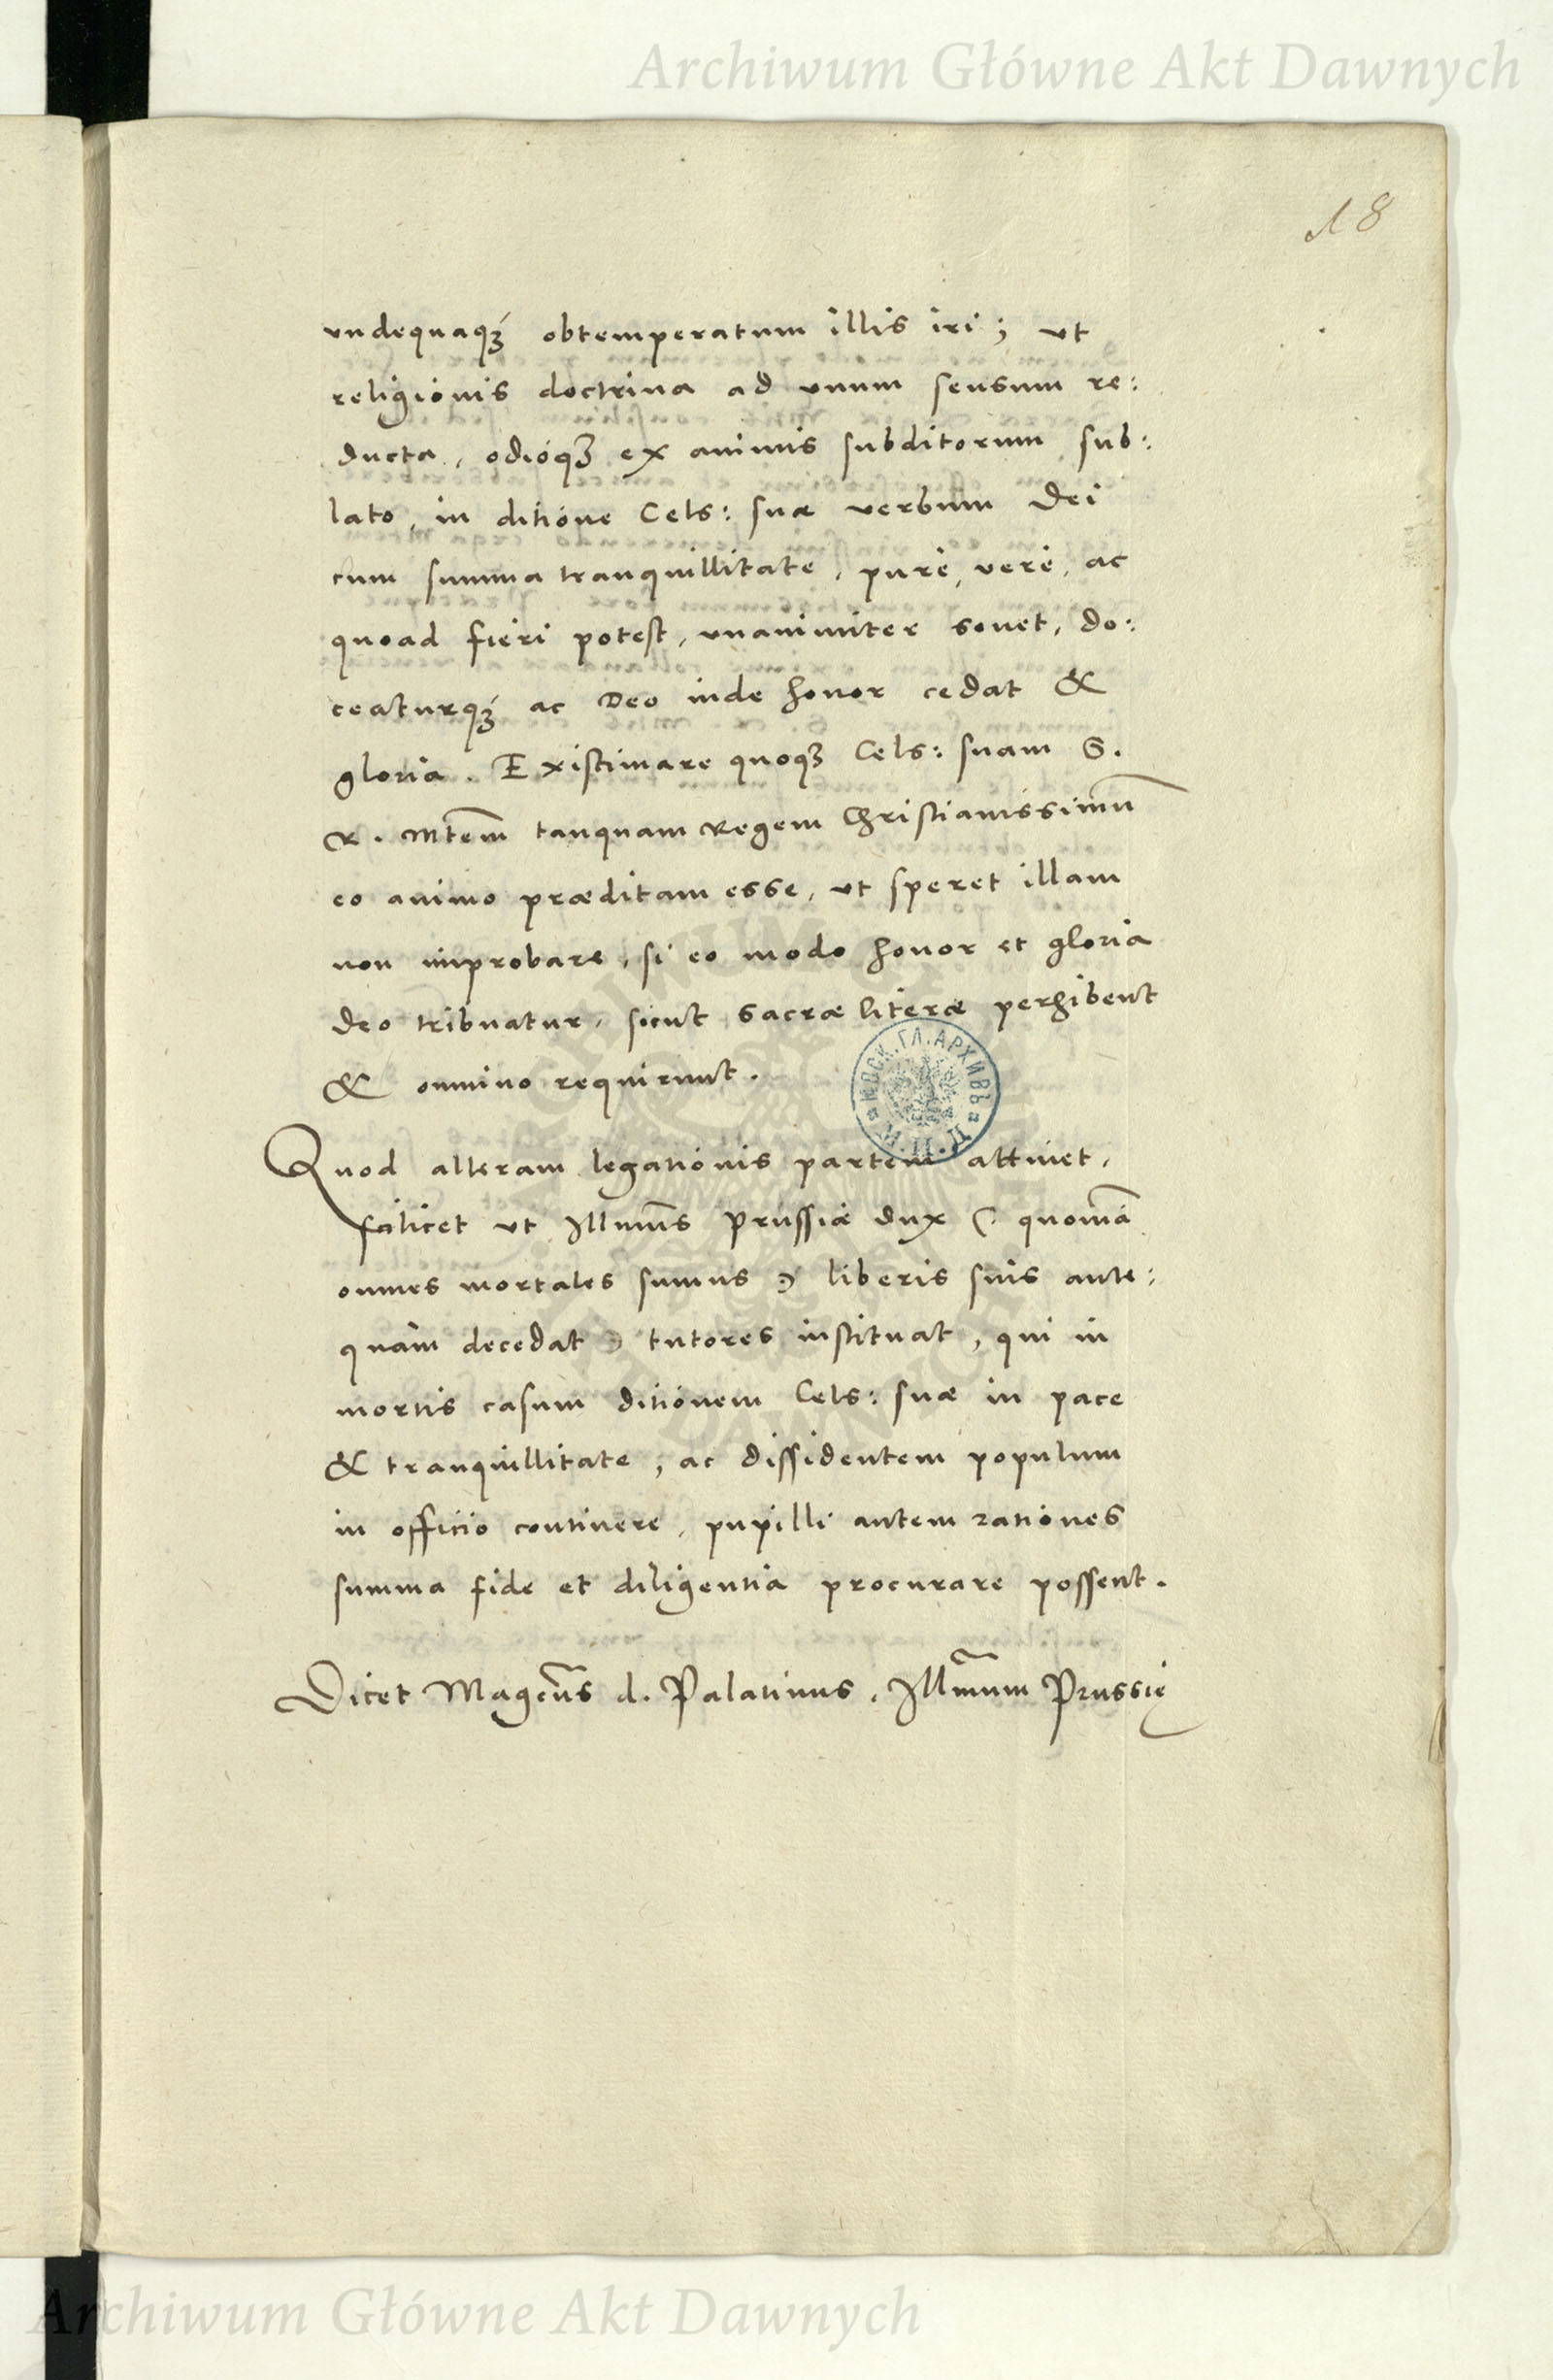 Archiwum Główne Akt Dawnych
18
vndequaqꝫ obtemperatum illis iri; vt
religionis doctrina ad vnum sensum re:
ducta, odióqꝫ ex animis subditorum sub:
lato, in ditione Cels: suæ verbum Dei
cum summa tranquillitate, purè, verè, ac
quoad fieri potest, vnanimiter sonet, do:
ceaturqꝫ ac Deo inde honor cedat &
gloria. Existimare quoqꝫ Cels: suam S.
R. Mtem̄ tanquam Regem Christianissimū
eo animo præditam esse, vt speret illam
non improbare, si eo modo honor et gloria
deo tribuatur, sicut sacræ literæ perhibent
& omnino requirunt.
МОСК. ГЛ. АРХИВЪ
Quod alteram legationis partem attinet,
scilicet vt Illmūs Prussiæ dux (: quoniā
omnes mortales sumus :) liberis suis ante:
quàm decedat :) tutores instituat, qui in
mortis casum ditionem Cels: suæ in pace
& tranquillitate, ac dissidentem populum
in officio continere, pupilli autem rationes
summa fide et diligentia procurare possent.
Dicet Magcūs d. Palatinus, Illm̄um Prussię
Archiwum Główne Akt Dawnych